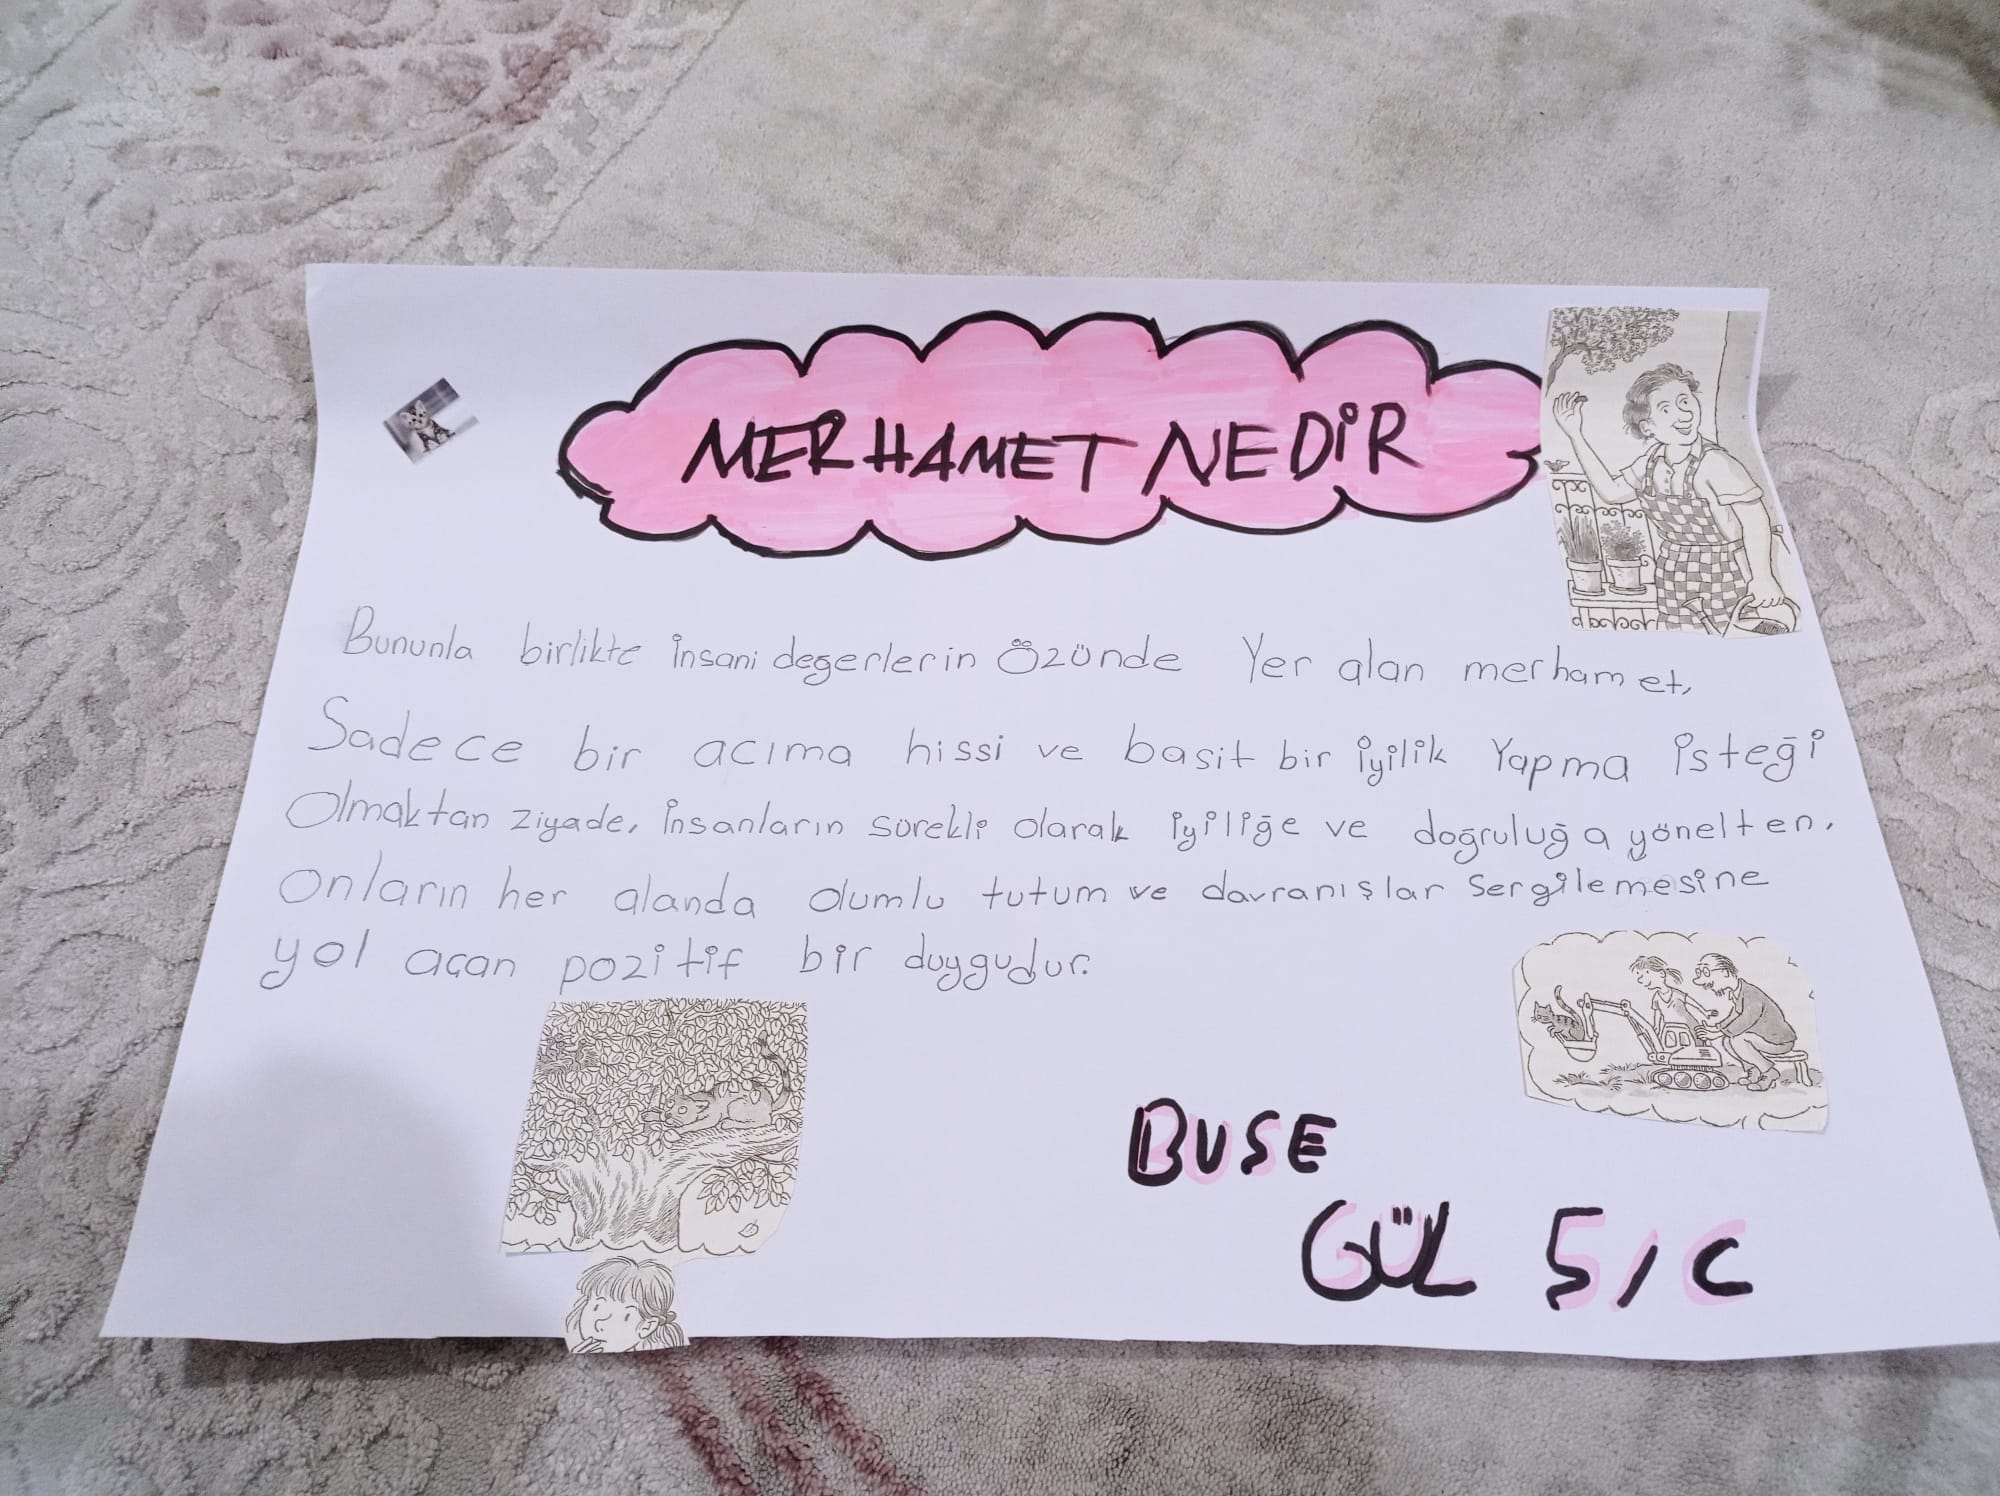 MERHAMET NEDİR
Bununla birlikte insani degerlerin Özünde Yer alan merhamet,
Sadece bir acıma hissi ve basit bir iyilik Yapma isteği
Olmaktan ziyade, insanların sürekli olarak iyiliğe ve doğruluğa yönelten,
Onların her alanda olumlu tutum ve davranışlar sergilemesine
yol açan pozitif bir duygudur.
BUSE
GÜL 5/C